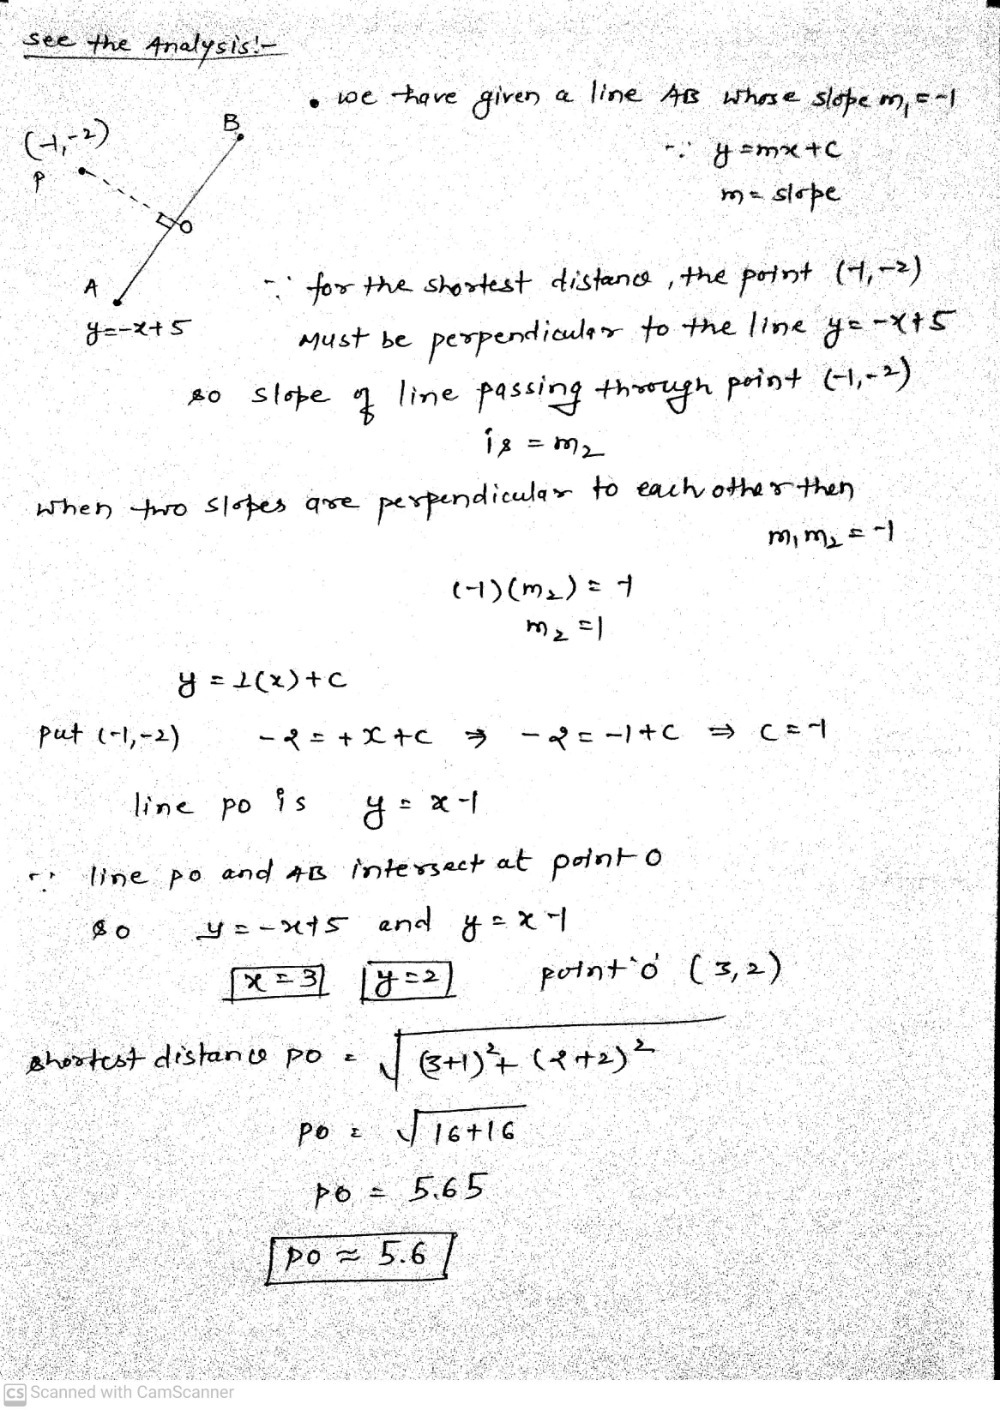 see the Analysis:-
• we have given a line AB whose slope m₁ = -1
∵ y = mx + c
m = slope
(-1,-2)
P
B
O
A
y=-x+5
∵ for the shortest distance, the point (-1,-2)
Must be perpendicular to the line y = -x+5
so slope of line passing through point (-1,-2)
is = m₂
when two slopes are perpendicular to each other then
m₁m₂ = -1
(-1)(m₂) = -1
m₂ = 1
y = 1(x)+c
put (-1,-2) -2 = +x+c ⇒ -2 = -1+c ⇒ c = -1
line po is y = x-1
∵ line po and AB intersect at point o
so y = -x+5 and y = x-1
x = 3 y = 2 point 'o' (3,2)
shortest distance po = √(3+1)²+(2+2)²
po = √16+16
po = 5.65
po ≈ 5.6
CS Scanned with CamScanner